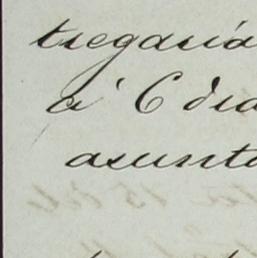 tregaría
á 6 dia
asunto